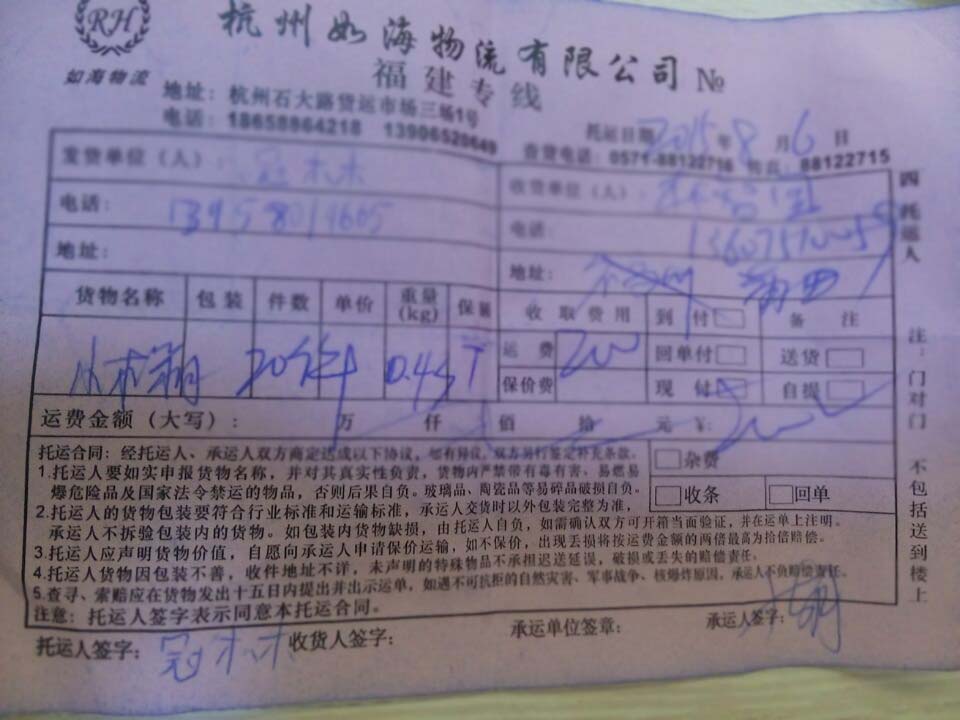 RH
如海物流
杭州如海物流有限公司 №
福建专线
地址：杭州石大路货运市场三场1号
电话：18658864218 13906520649
托运日期 2015年8月6日
查货电话：0571-88122716 88122715
发货单位（人）：冠木林
收货单位（人）：
电话：13958019605
电话：13607570055
地址：
地址：莆田
货物名称 包装 件数 单价 重量(kg) 保额 收取费用 到付 备注
20件 0.45T 运费 200 回单付 送货
保价费 现付 自提
运费金额（大写）： 万 仟 佰 拾 元 ¥：200
托运合同：经托运人、承运人双方商定达成以下协议，如有异议，双方另行签定补充条款。
1.托运人要如实申报货物名称，并对其真实性负责，货物内严禁带有毒有害、易燃易
爆危险品及国家法令禁运的物品，否则后果自负。玻璃品、陶瓷品等易碎品破损自负。
2.托运人的货物包装要符合行业标准和运输标准，承运人交货时以外包装完整为准，
承运人不拆验包装内的货物。如包装内货物缺损，由托运人自负，如需确认双方可开箱当面验证，并在运单上注明。
3.托运人应声明货物价值，自愿向承运人申请保价运输，如不保价，出现丢损将按运费金额的两倍最高为拾倍赔偿。
4.托运人货物因包装不善，收件地址不详，未声明的特殊物品不承担迟送延误，破损或丢失的赔偿责任。
5.查寻、索赔应在货物发出十五日内提出并出示运单，如遇不可抗拒的自然灾害、军事战争、核爆炸原因，承运人不负赔偿责任。
注意：托运人签字表示同意本托运合同。
杂费
收条 回单
托运人签字：冠木林 收货人签字： 承运单位签章： 承运人签字：
四 托运人
注：门对门 不包括送到楼上